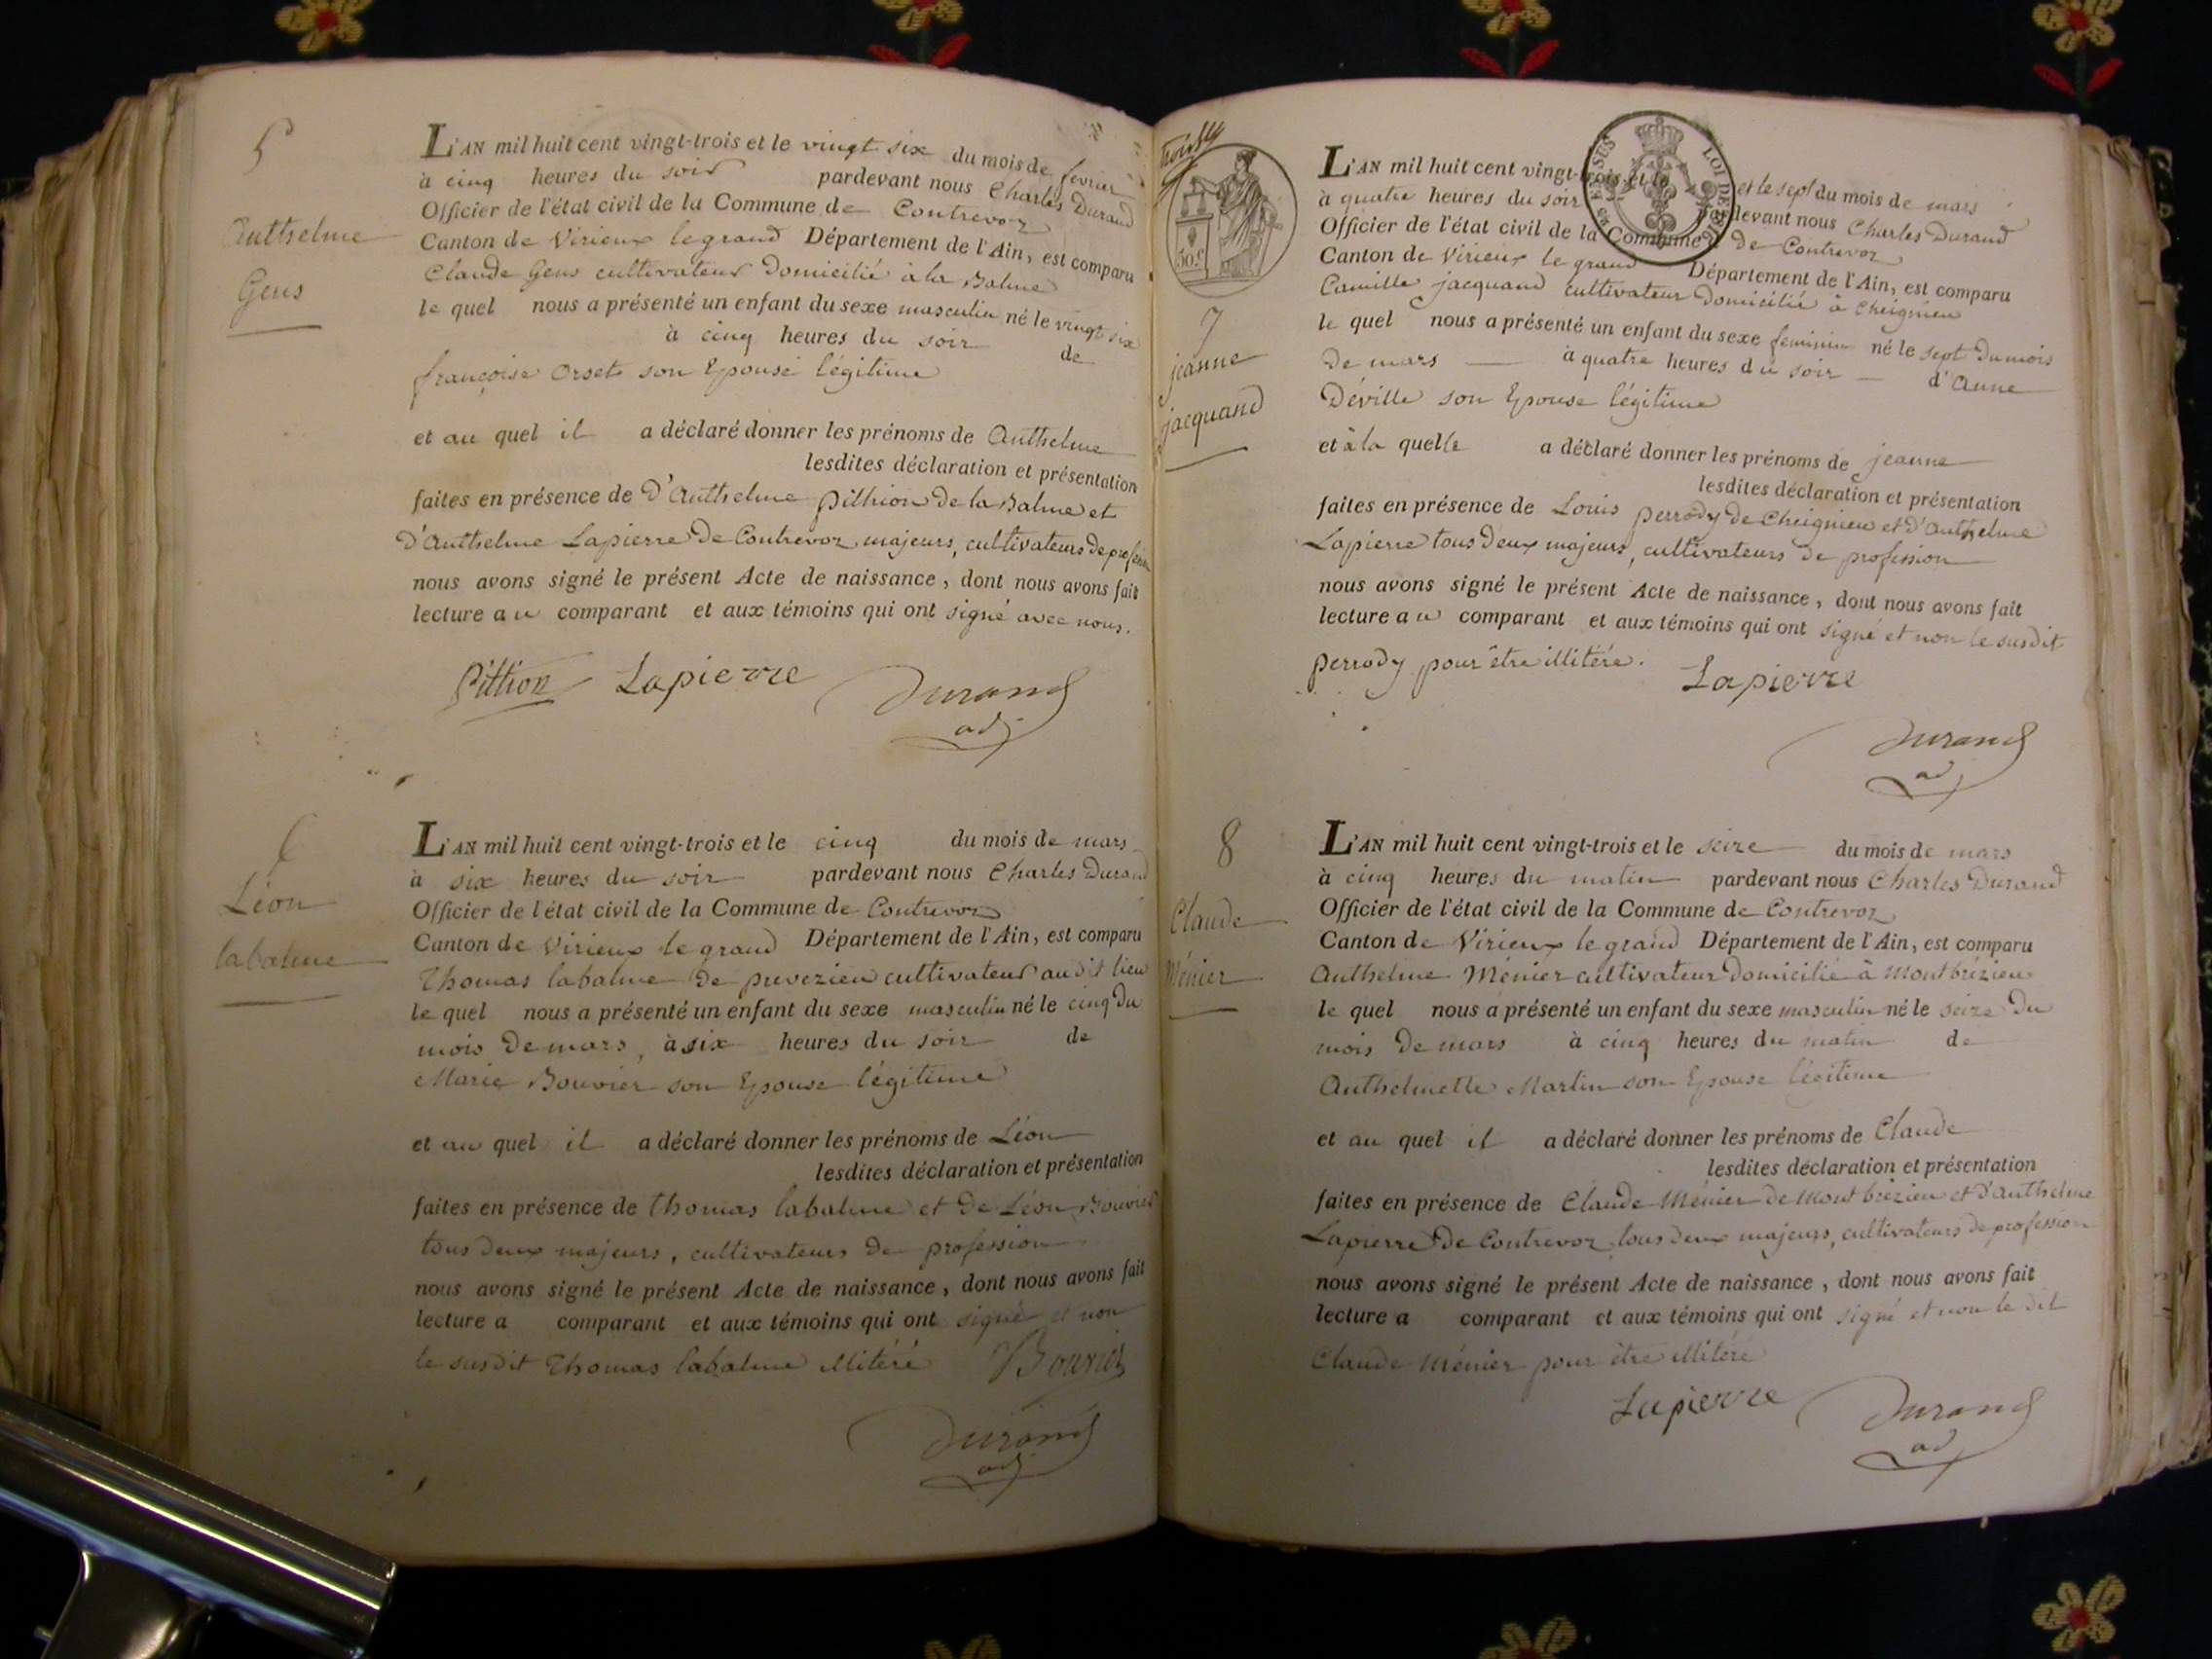 5
Anthelme
Gens
L'AN mil huit cent vingt-trois et le vingt six du mois de fevrier
à cinq heures du soir pardevant nous Charles Durand
Officier de l'état civil de la Commune de Contrevoz
Canton de Virieux le grand Département de l'Ain, est comparu
Claude Gens cultivateur Domicilié à la Balme
le quel nous a présenté un enfant du sexe masculin né le vingt six
à cinq heures du soir de
françoise Orset son Epouse légitime
et au quel il a déclaré donner les prénoms de Anthelme
lesdites déclaration et présentation
faites en présence de D'Anthelme Pithion De la Balme et
D'Anthelme Lapierre De Contrevoz majeurs, cultivateurs De profession
nous avons signé le présent Acte de naissance, dont nous avons fait
lecture au comparant et aux témoins qui ont signé avec nous.
Pittion Lapierre Durand
adj
6
Léon
labalme
L'AN mil huit cent vingt-trois et le cinq du mois de mars
à six heures du soir pardevant nous Charles Durand
Officier de l'état civil de la Commune de Contrevoz
Canton de Virieux le grand Département de l'Ain, est comparu
Thomas labalme De prevezieu cultivateur audit lieu
le quel nous a présenté un enfant du sexe masculin né le cinq Du
mois De mars, à six heures du soir de
Marie Bouvier son Epouse légitime
et au quel il a déclaré donner les prénoms de Léon
lesdites déclaration et présentation
faites en présence de thomas labalme et De Léon Bouvier
tous Deux majeurs, cultivateurs De profession
nous avons signé le présent Acte de naissance, dont nous avons fait
lecture a comparant et aux témoins qui ont signé et non
le susdit Thomas labalme illitéré Bouvier
Durand
adj
50.c
RO REGRESSUS
LOI DE
L'AN mil huit cent vingt-trois et le et le sept du mois de mars
à quatre heures du soir pardevant nous Charles Durand
Officier de l'état civil de la Commune de Contrevoz
Canton de Virieux le grand Département de l'Ain, est comparu
7
jeanne
jacquand
Camille jacquand cultivateur Domicilié à Cheignieu
le quel nous a présenté un enfant du sexe feminin né le sept Du mois
De mars à quatre heures du soir d'Anne
Déville son Epouse légitime
et à la quelle a déclaré donner les prénoms de jeanne
lesdites déclaration et présentation
faites en présence de Louis perrody De Cheignieu et D'Anthelme
Lapierre tous Deux majeurs, cultivateurs De profession
nous avons signé le présent Acte de naissance, dont nous avons fait
lecture au comparant et aux témoins qui ont signé et non le susdit
perrody pour être illitéré. Lapierre
Durand
ad
8
Claude
Ménier
L'AN mil huit cent vingt-trois et le seize du mois de mars
à cinq heures du matin pardevant nous Charles Durand
Officier de l'état civil de la Commune de Contrevoz
Canton de Virieux le grand Département de l'Ain, est comparu
Anthelme Ménier cultivateur Domicilié à Montbrézieu
le quel nous a présenté un enfant du sexe masculin né le seize Du
mois De mars à cinq heures du matin de
Anthelmette Martin son Epouse légitime
et au quel il a déclaré donner les prénoms de Claude
lesdites déclaration et présentation
faites en présence de Claude Ménier De Montbrézieu et D'Anthelme
Lapierre De Contrevoz tous Deux majeurs, cultivateurs De profession
nous avons signé le présent Acte de naissance, dont nous avons fait
lecture a comparant et aux témoins qui ont signé et non le dit
Claude Ménier pour être illitéré
Lapierre Durand
ad